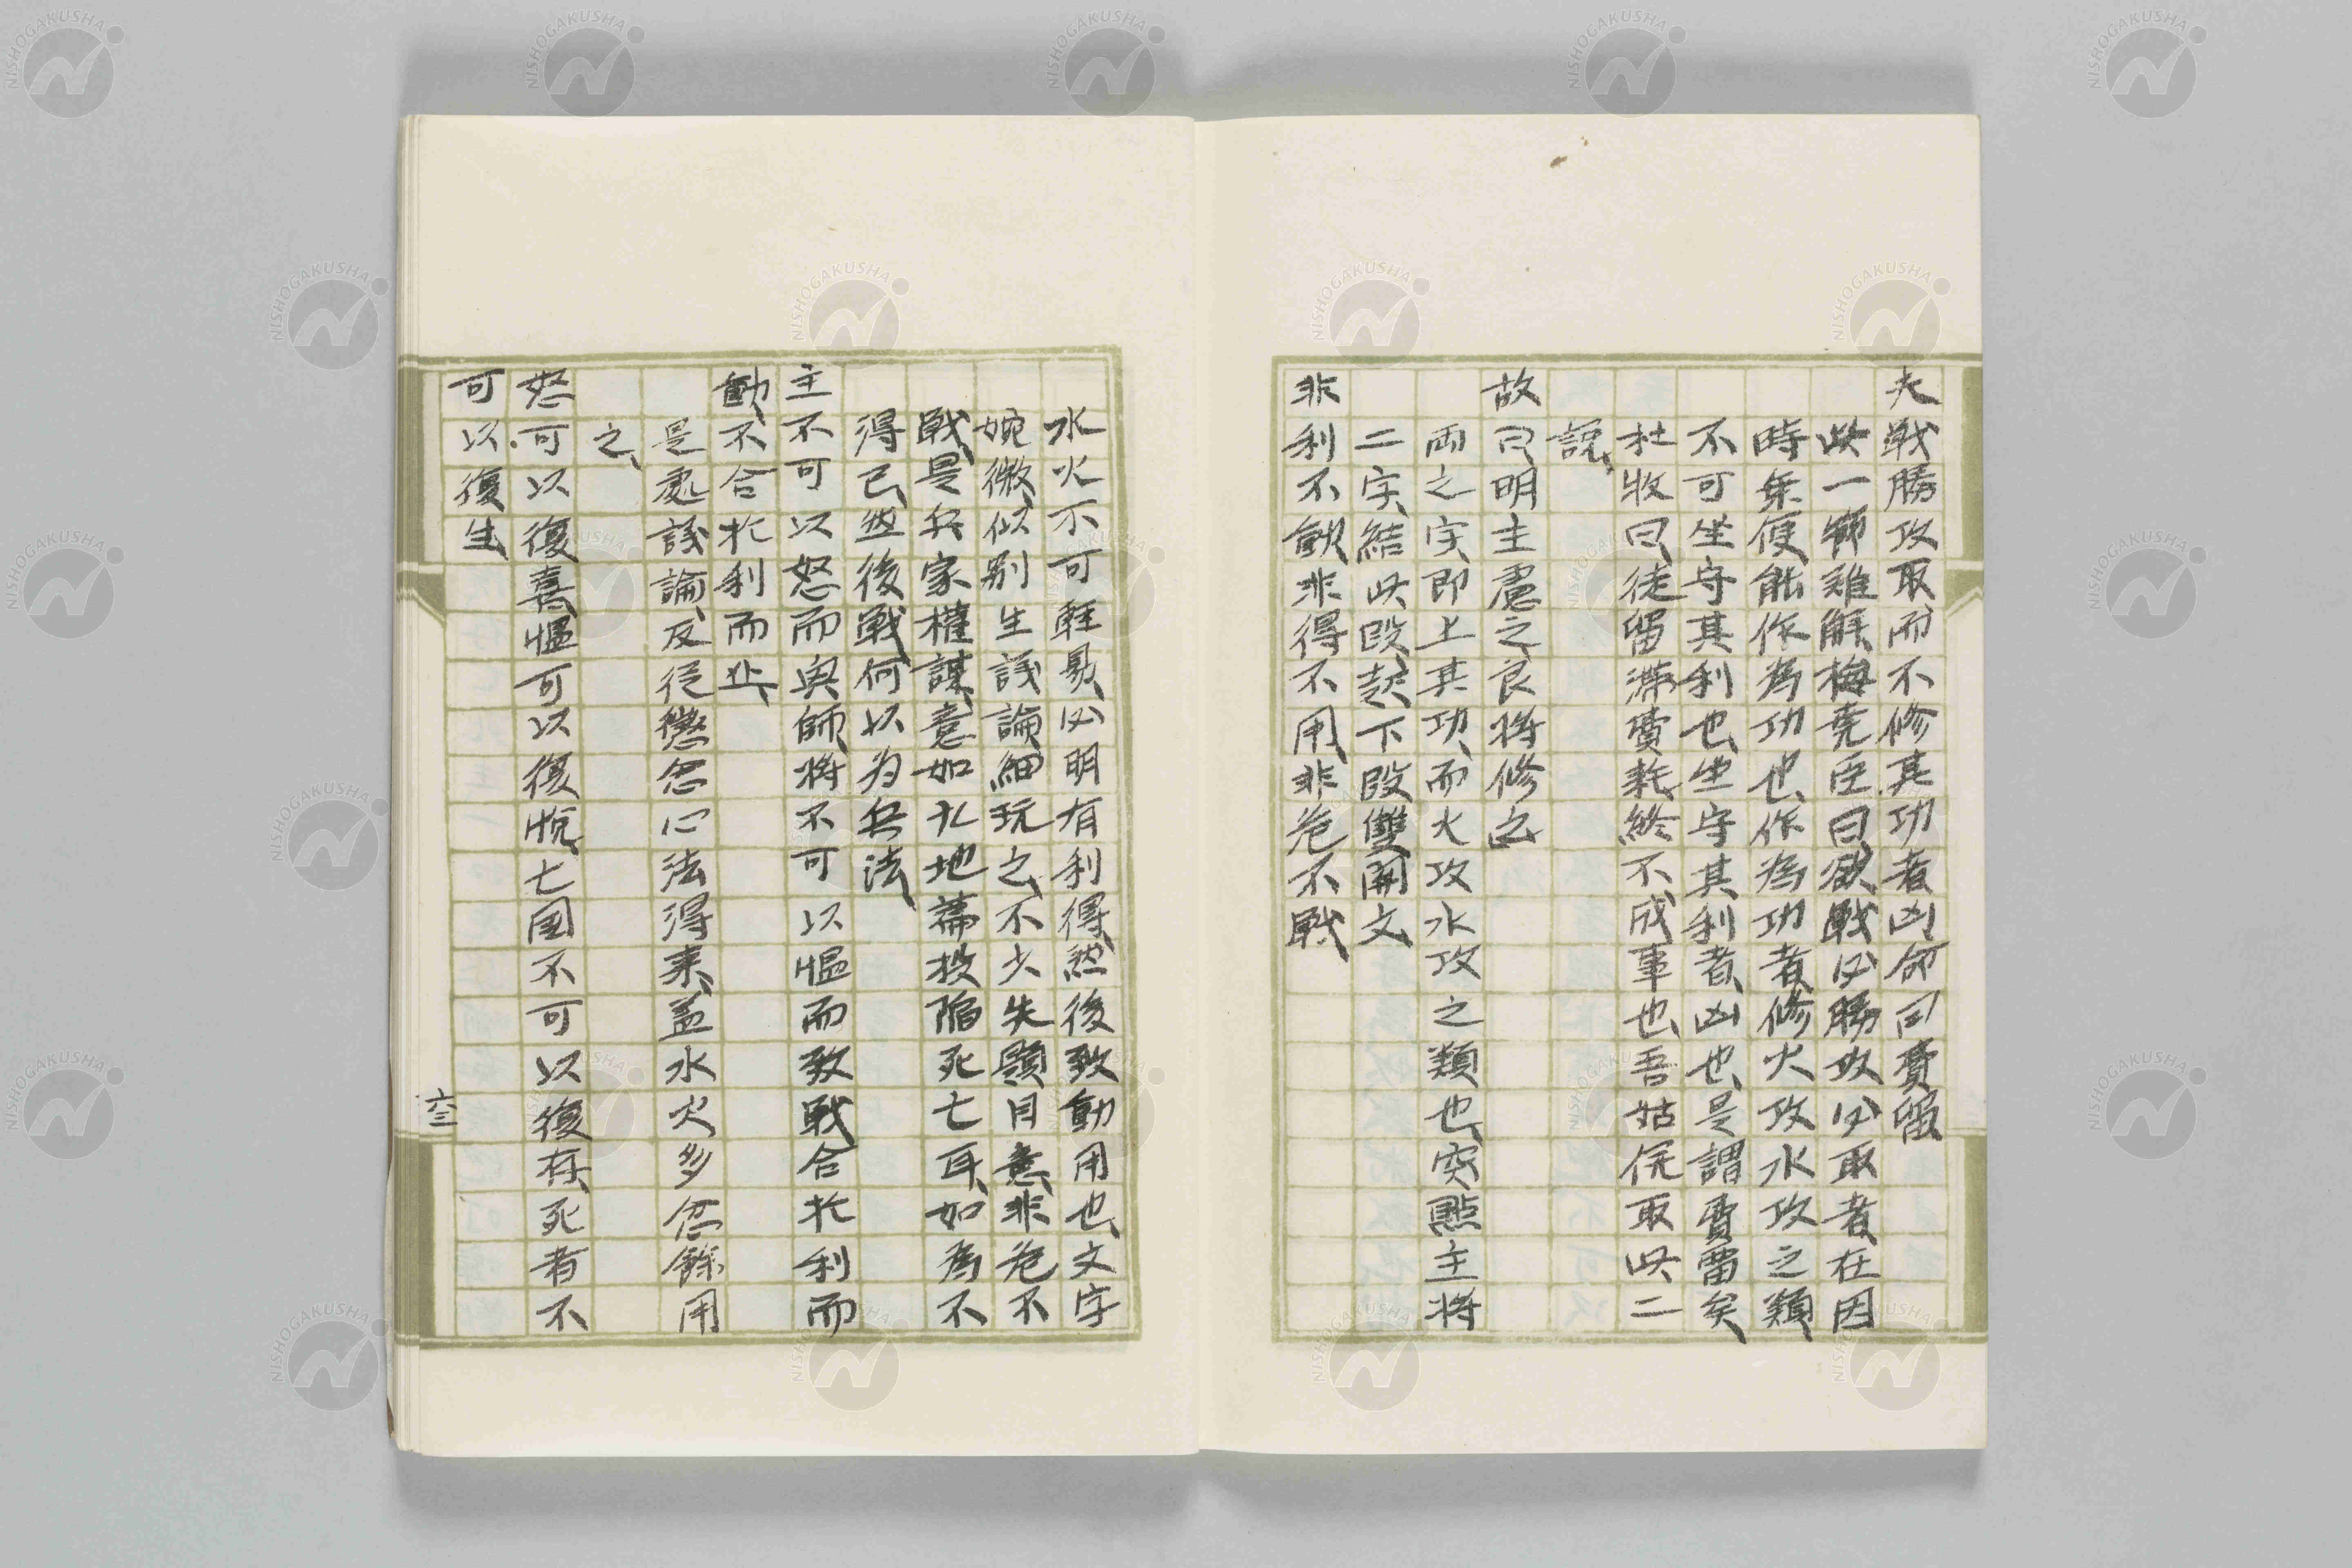 夫戰勝攻取而不修其功者凶命曰費留
此一節難解梅堯臣曰欲戰必勝攻必取者在因
時乗便能作為功也作為功者修火攻水攻之類
不可坐守其利也坐守其利者凶也是謂費畱矣
杜牧曰徒留滞費耗終不成事也吾姑併取此二
說
故曰明主慮之良将修之
両之字即上其功而火攻水攻之類也突點主将
二字結此段起下段雙開文
非利不動非得不用非危不戰
水火不可軽易必明有利得然後致動用也文字
婉微似别生議論細玩之不少失領目意非危不
戰是兵家權謀意如九地篇投陥死亡耳如為不
得已然後戰何以为兵法
主不可以怒而興師将不可以愠而致戰合於利而
動不合於利而止
是處議論反従懲忿心法得来盖水火多忿餘用
之
怒可以復喜愠可以復悅亡国不可以復存死者不
可以復生
六三
NISHOGAKUSHA